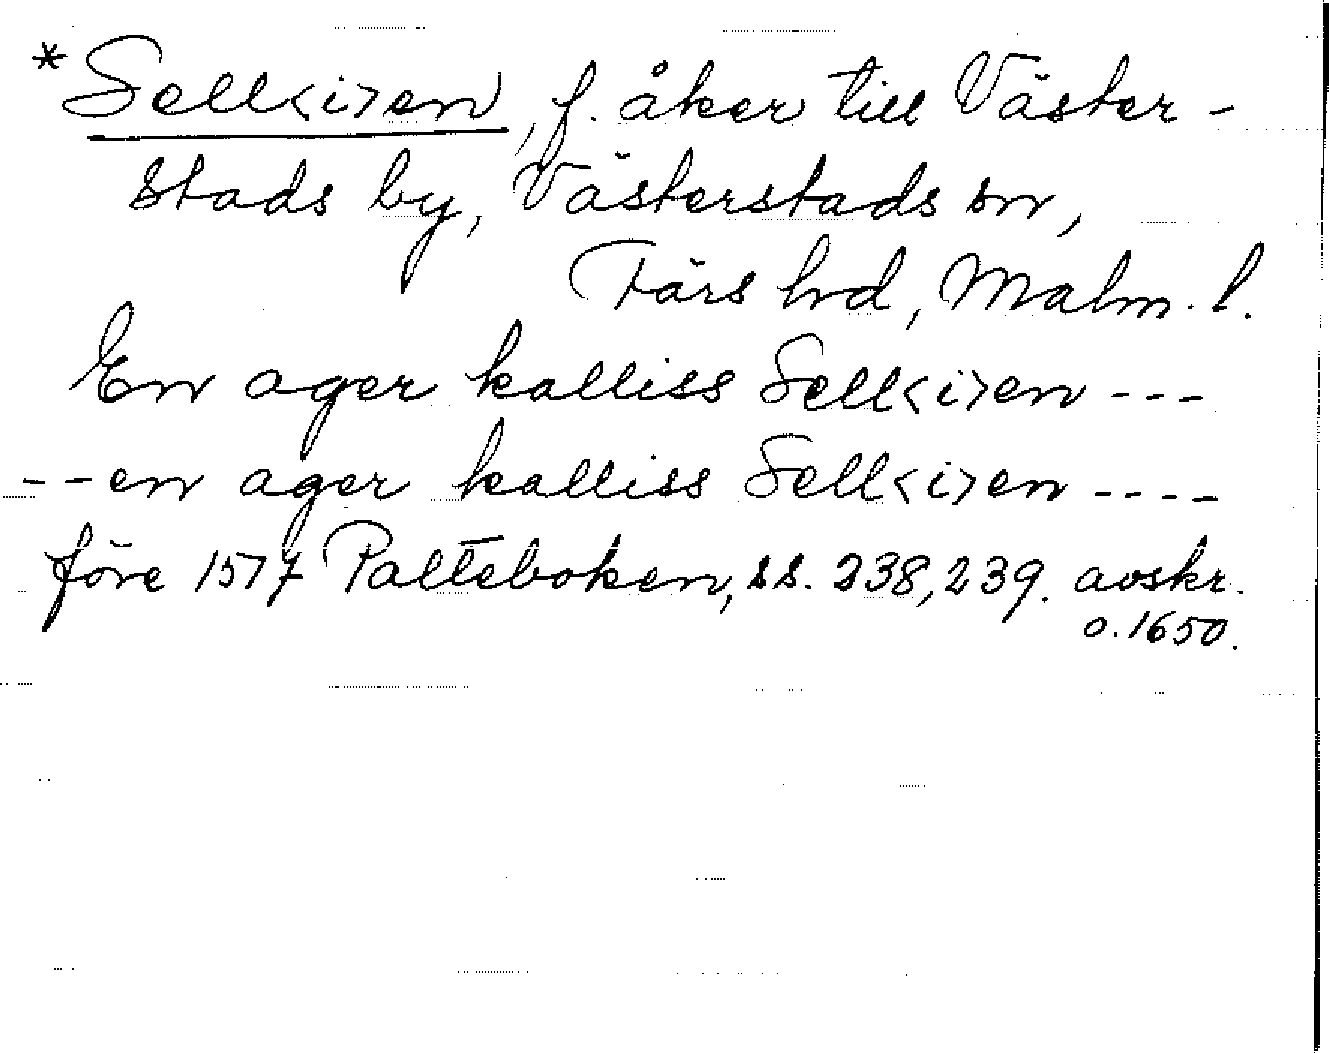 *Sell<i>en, f. åker till Väster-
stads by, Västerstads sn,
Färs hd, Malm. l.
En ager kalliss Sell<i>en ---
--en ager kalliss Sell<i>en ----
före 1577 Palteboken, ss. 238, 239. avskr.
o. 1650.